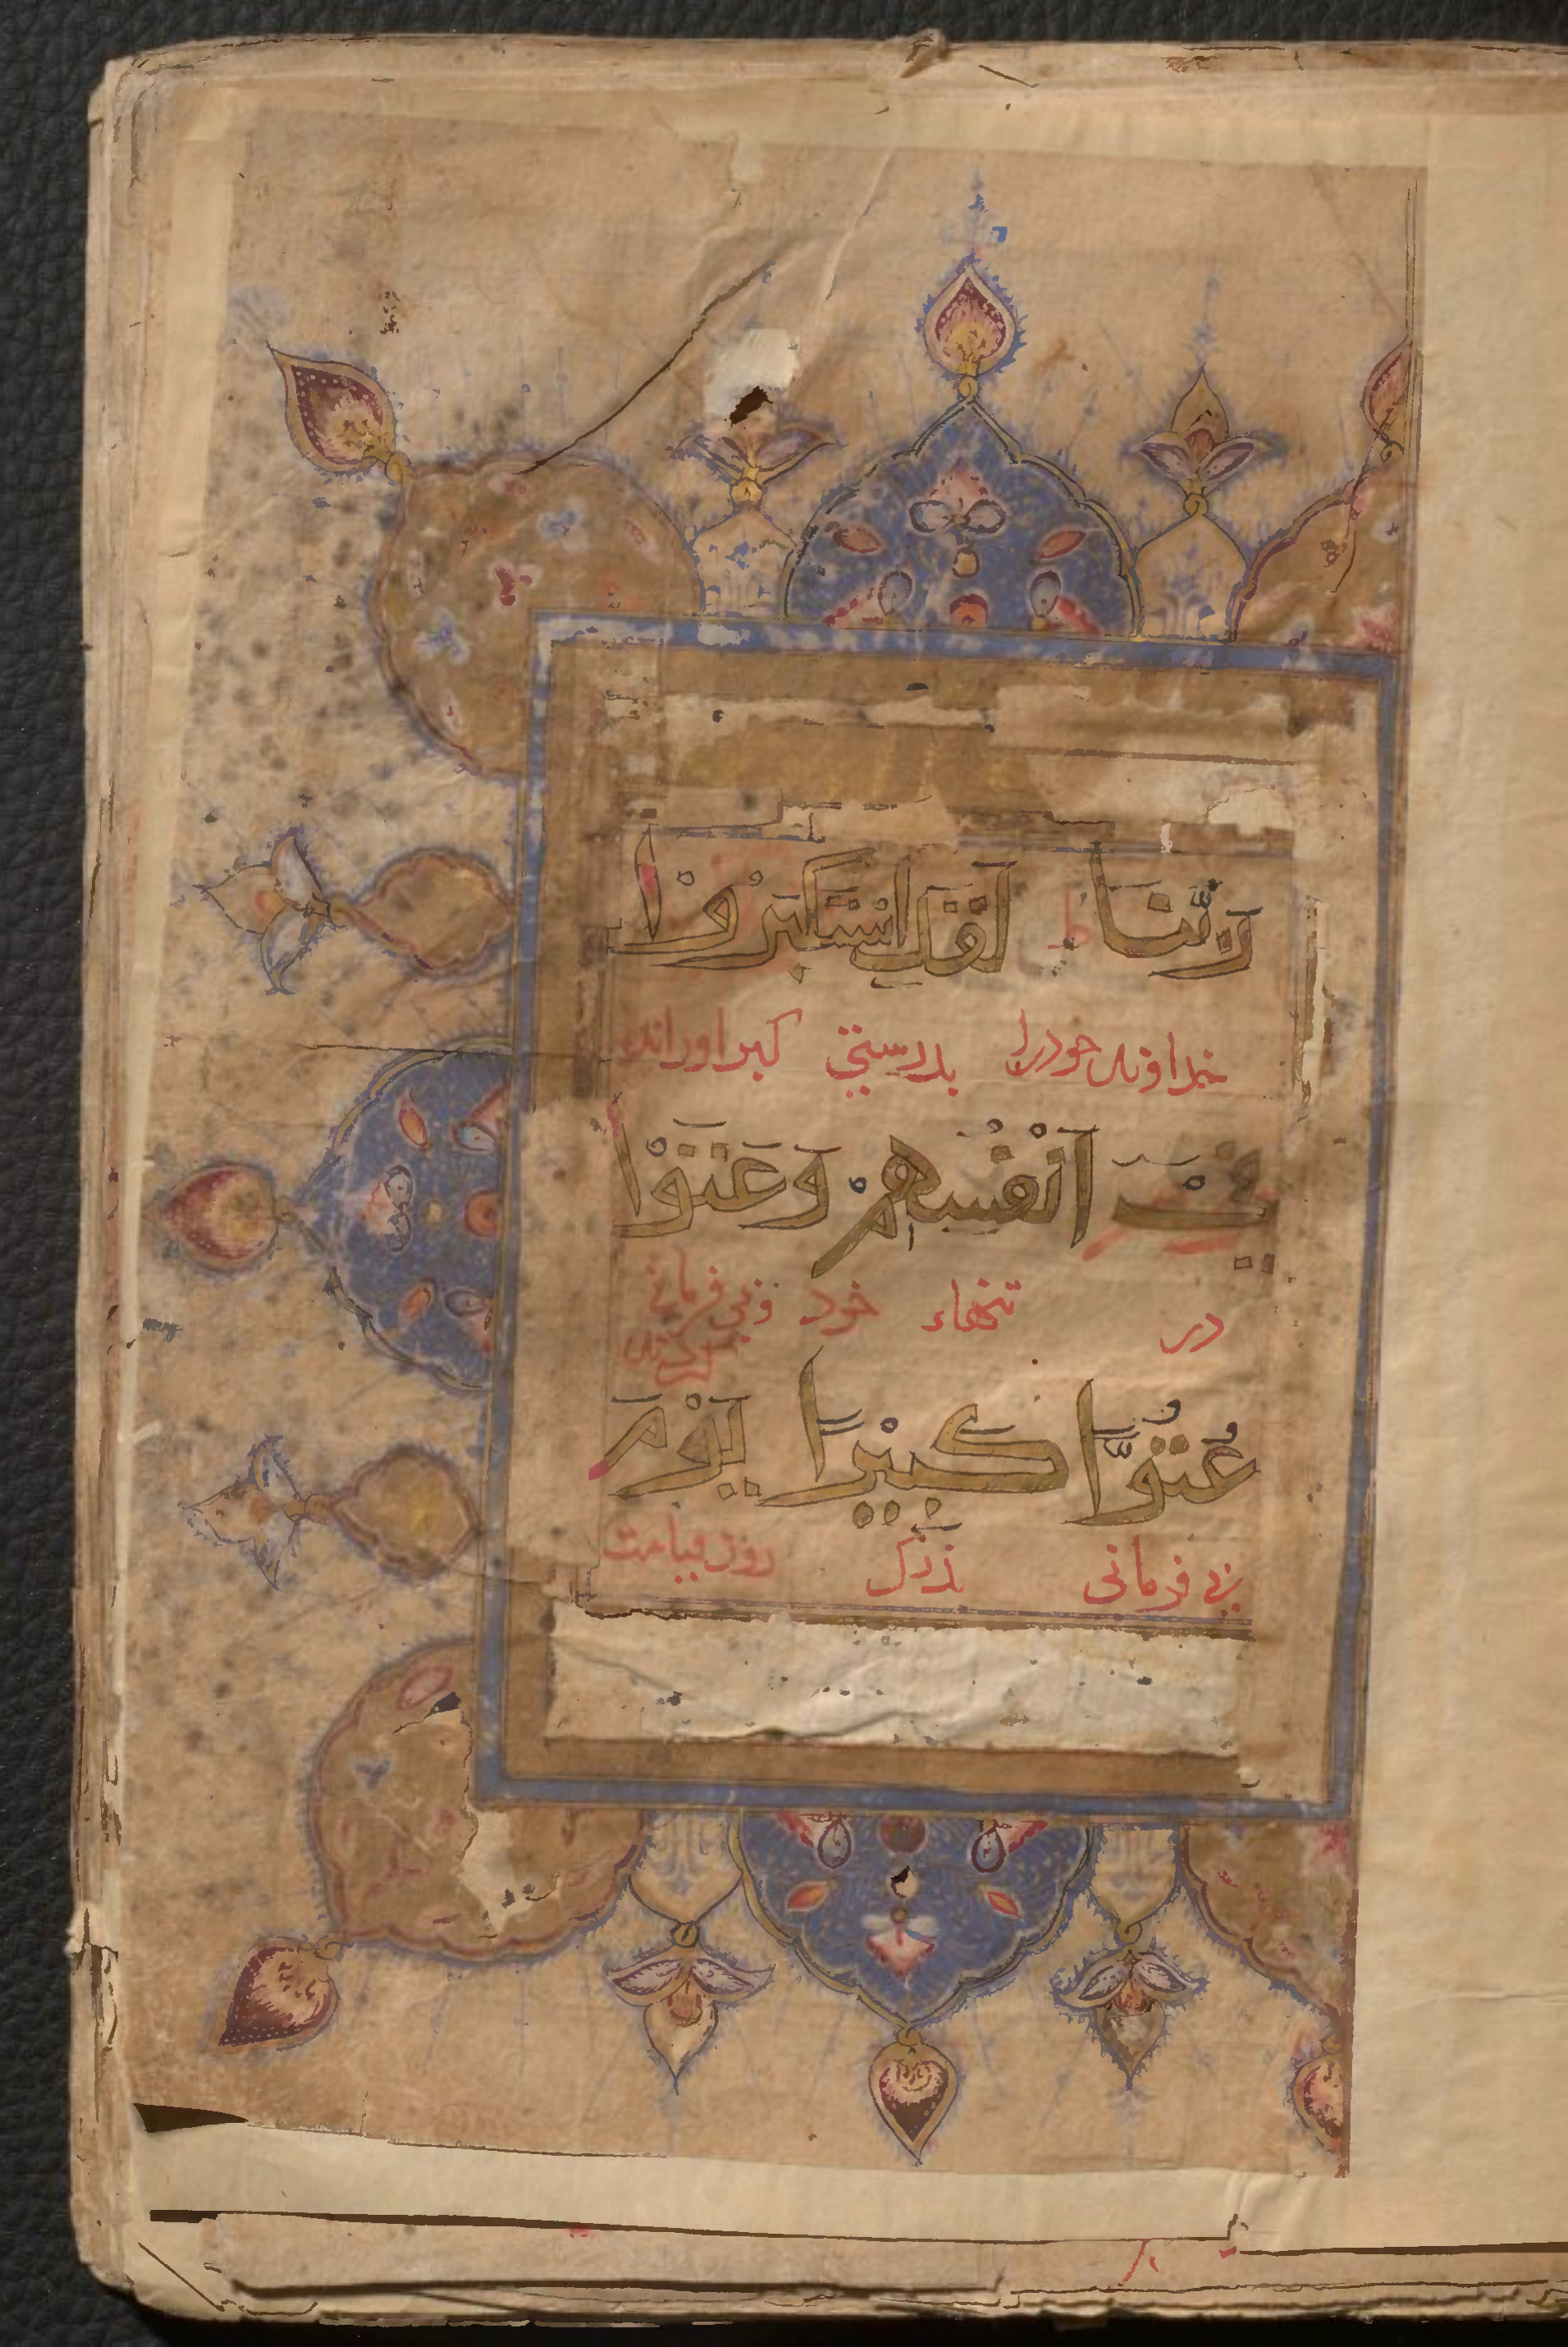 رَبَّنَا ط لَقَدِ اسْتَكْبَرُوْا
خداوند خود را بدرستی کبر اوراند
فِيْ اَنْفُسِهِمْ وَعَتَوْا
در تنهاء خود و بی فرمانی
کردند
عُتُوًّا كَبِيْرًا يَوْمَ
بی فرمانی بزرک روز قیامت